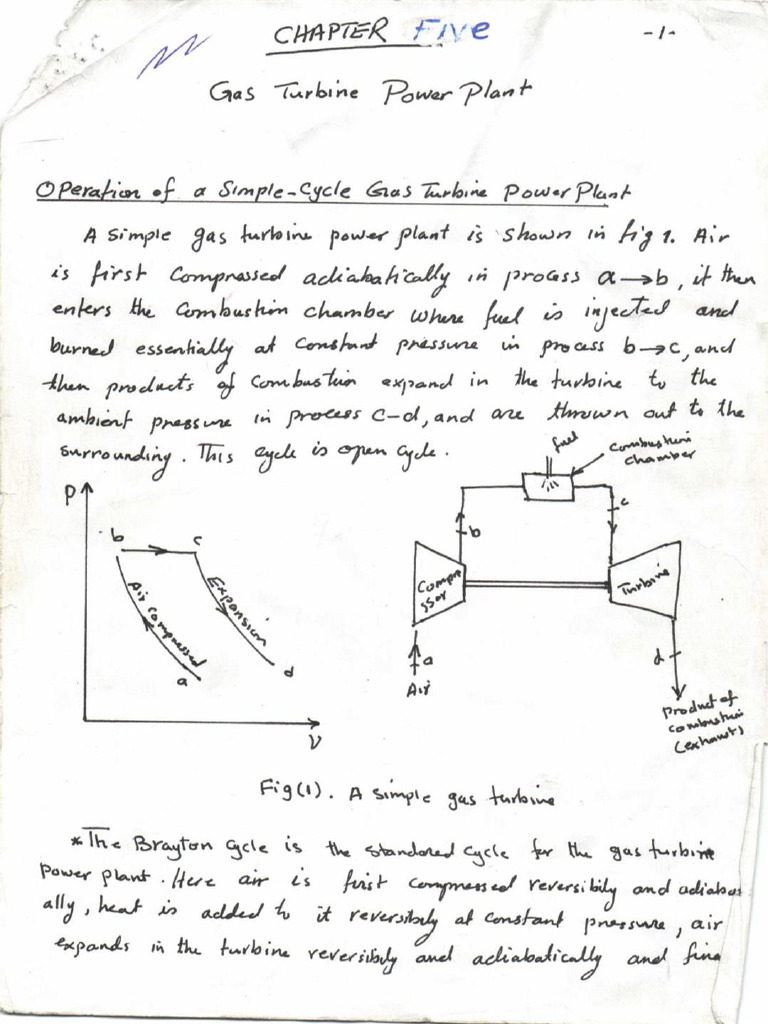 CHAPTER Five
-1-
Gas Turbine Power Plant
Operation of a Simple-Cycle Gas Turbine Power Plant
A simple gas turbine power plant is shown in fig 1. Air
is first compressed adiabatically in process a→b, it then
enters the combustion chamber where fuel is injected and
burned essentially at constant pressure in process b→c, and
then products of combustion expand in the turbine to the
ambient pressure in process c-d, and are thrown out to the
surrounding. This cycle is open cycle.
fuel
combustion
chamber
P
b
c
Air compressed
Expansion
a
d
V
b
c
Compre
ssor
Turbine
a
Air
d
Product of
combustion
(exhaust)
Fig(1). A simple gas turbine
*The Brayton cycle is the standored cycle for the gas turbine
power plant. Here air is first compressed reversibily and adiaba
ally, heat is added to it reversibly at constant pressure, air
expands in the turbine reversibly and adiabatically and fina